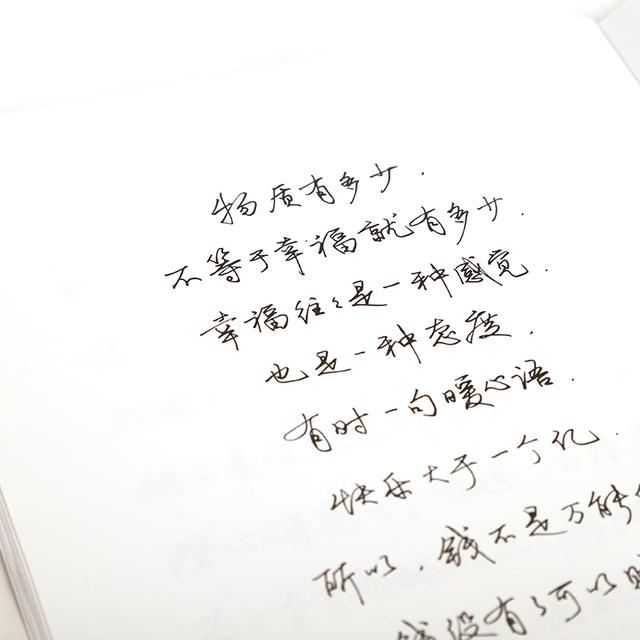 物质有多少.
不等于幸福就有多少.
幸福往往是一种感觉.
也是一种态度.
有时一句暖心语.
快乐大于一个亿.
所以,钱不是万能
钱没有了可以